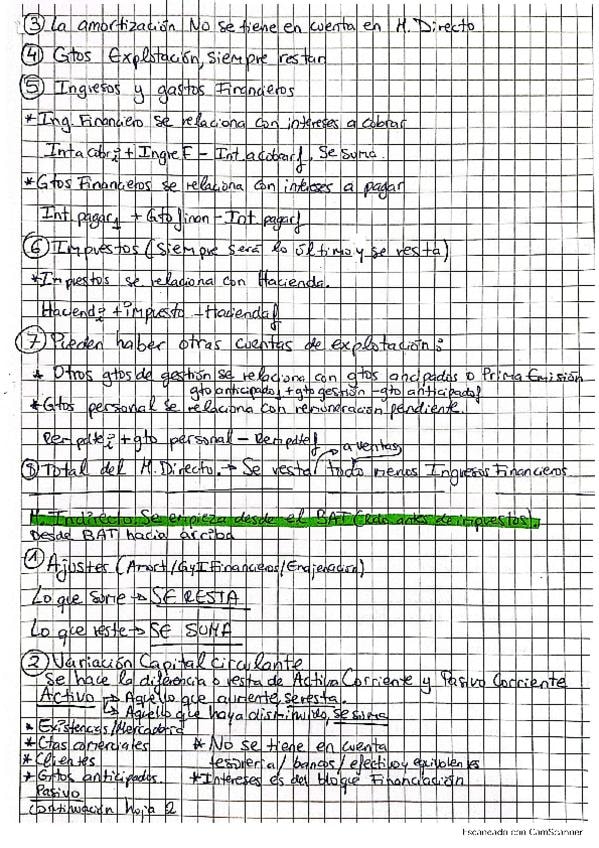 ③ La amortización No se tiene en cuenta en M. Directo
④ Gtos Explotación, siempre restan
⑤ Ingresos y gastos Financieros
*Ing. Financiero se relaciona con intereses a cobrar
Int a cobrar i + Ingre F - Int. a cobrar f, se suma.
*Gtos Financieros se relaciona con intereses a pagar
Int. pagar i + Gto finan - Int. pagar f
⑥ Impuestos (siempre será lo último y se resta)
*Impestos se relaciona con Hacienda.
Haciend i + impuesto - Hacienda f
⑦ Pueden haber otras cuentas de explotación:
* Otros gtos de gestión se relaciona con gtos ancipados o Prima Emisión
gto anticipado i + gto gestión - gto anticipado f
*Gtos personal se relaciona con remuneración pendiente.
Rempdte i + gto personal - Rempdte f
→ a ventas
⑧ Total del M. Directo. → Se resta todo menos Ingresos Financieros
M. Indirecto. Se empieza desde el BAT (Rdo antes de impuestos).
Desde BAT hacia arriba
① Ajustes (Amort/GyI Financieros/Enajenación)
Lo que sume → SE RESTA
Lo que reste → SE SUMA
② Variación Capital circulante
Se hace la diferencia o resta de Activo Corriente y Pasivo Corriente
Activo → Aquello que aumente, se resta.
→ Aquello que haya disminuido, se suma
* Existencias/Mercaderia
* Ctas comerciales * No se tiene en cuenta
* Clientes tesoreria/bancos/efectivo y equivalentes
* Gtos anticipados. *Intereses es del bloque Financiación
Pasivo
Continuación hoja 2
Escaneado con CamScanner